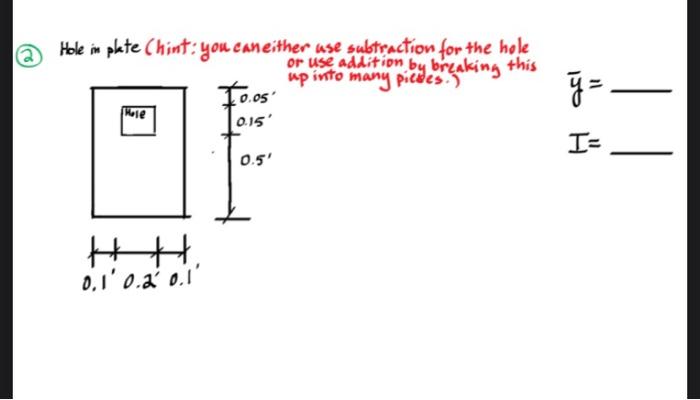 ② Hole in plate (hint: you can either use subtraction for the hole
or use addition by breaking this
up into many pieces.)
Hole
0.05'
0.15'
0.5'
ȳ =
I =
0.1' 0.2' 0.1'